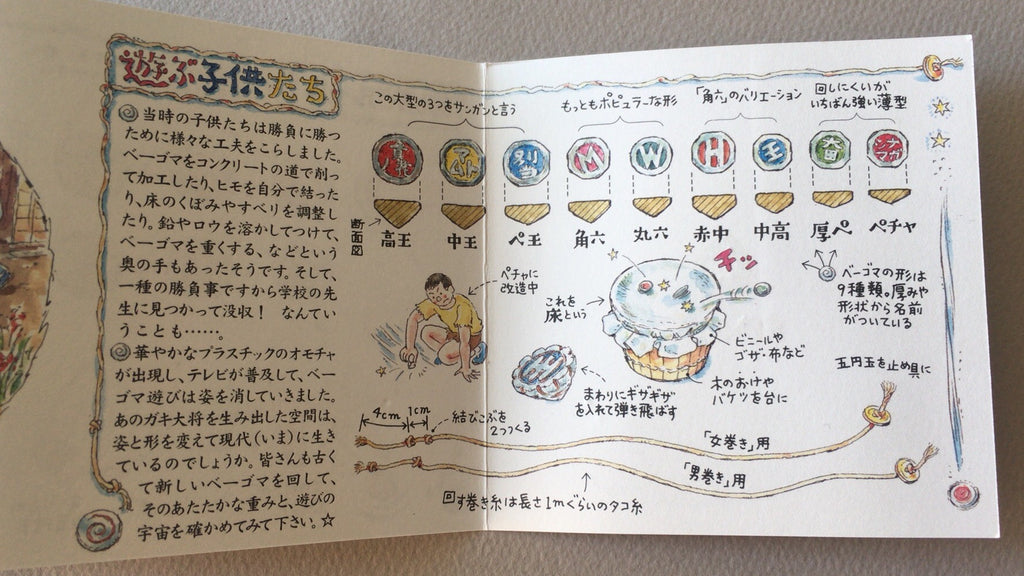 遊ぶ子供たち
当時の子供たちは勝負に勝つ
ために様々な工夫をこらしました。
ベーゴマをコンクリートの道で削っ
て加工したり、ヒモを自分で結った
り、床のくぼみやすべりを調整し
たり。鉛やロウを溶かしてつけて、
ベーゴマを重くする、などという
奥の手もあったそうです。そして、
一種の勝負事ですから学校の先
生に見つかって没収！ なんてい
うことも……。
華やかなプラスチックのオモチャ
が出現し、テレビが普及して、ベー
ゴマ遊びは姿を消していきました。
あのガキ大将を生み出した空間は、
姿と形を変えて現代(いま)に生き
ているのでしょうか。皆さんも古く
て新しいベーゴマを回して、
そのあたたかな重みと、遊びの
宇宙を確かめてみて下さい。☆
この大型の3つをサンカンと言う
もっともポピュラーな形
「角六」のバリエーション
回しにくいが
いちばん強い薄型
M
W
H
王
断面図
高王
中王
ペ王
角六
丸六
赤中
中高
厚ペ
ペチャ
ペチャに
改造中
これを
床という
チッ
ベーゴマの形は
9種類。厚みや
形状から名前
がついている
ビニールや
ゴザ・布など
木のおけや
バケツを台に
まわりにギザギザ
を入れて弾き飛ばす
五円玉を止め具に
4cm
1cm
結びこぶを
2つつくる
「女巻き」用
「男巻き」用
回す巻き糸は長さ1mぐらいのタコ糸